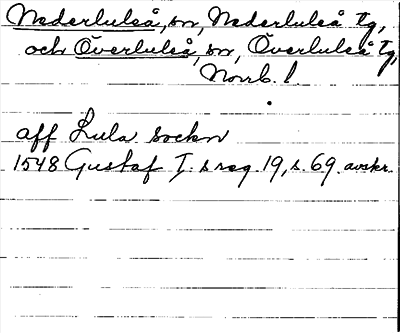 Nederluleå, sn, Nederluleå tg,
och Överluleå, sn, Överluleå tg,
Norrb. l.
aff Lula sockn
1548 Gustaf I:s reg. 19, s. 69. avskr.